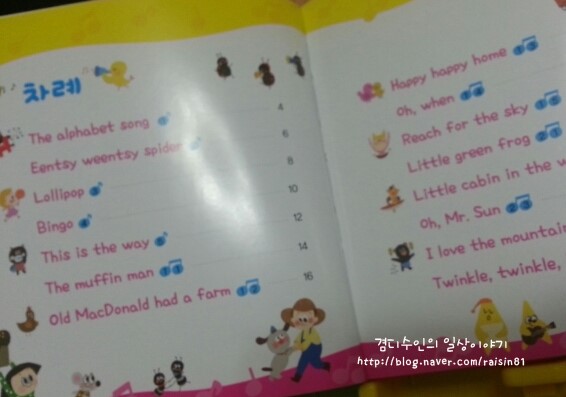 차례
The alphabet song 4
Eentsy weentsy spider 6
Lollipop 8
Bingo 10
This is the way 12
The muffin man 14
Old MacDonald had a farm 16
Happy happy home
Oh, when
Reach for the sky
Little green frog
Little cabin in the
Oh, Mr. Sun
I love the mountain
Twinkle, twinkle,
겸디수인의 일상이야기
http://blog.naver.com/raisin81